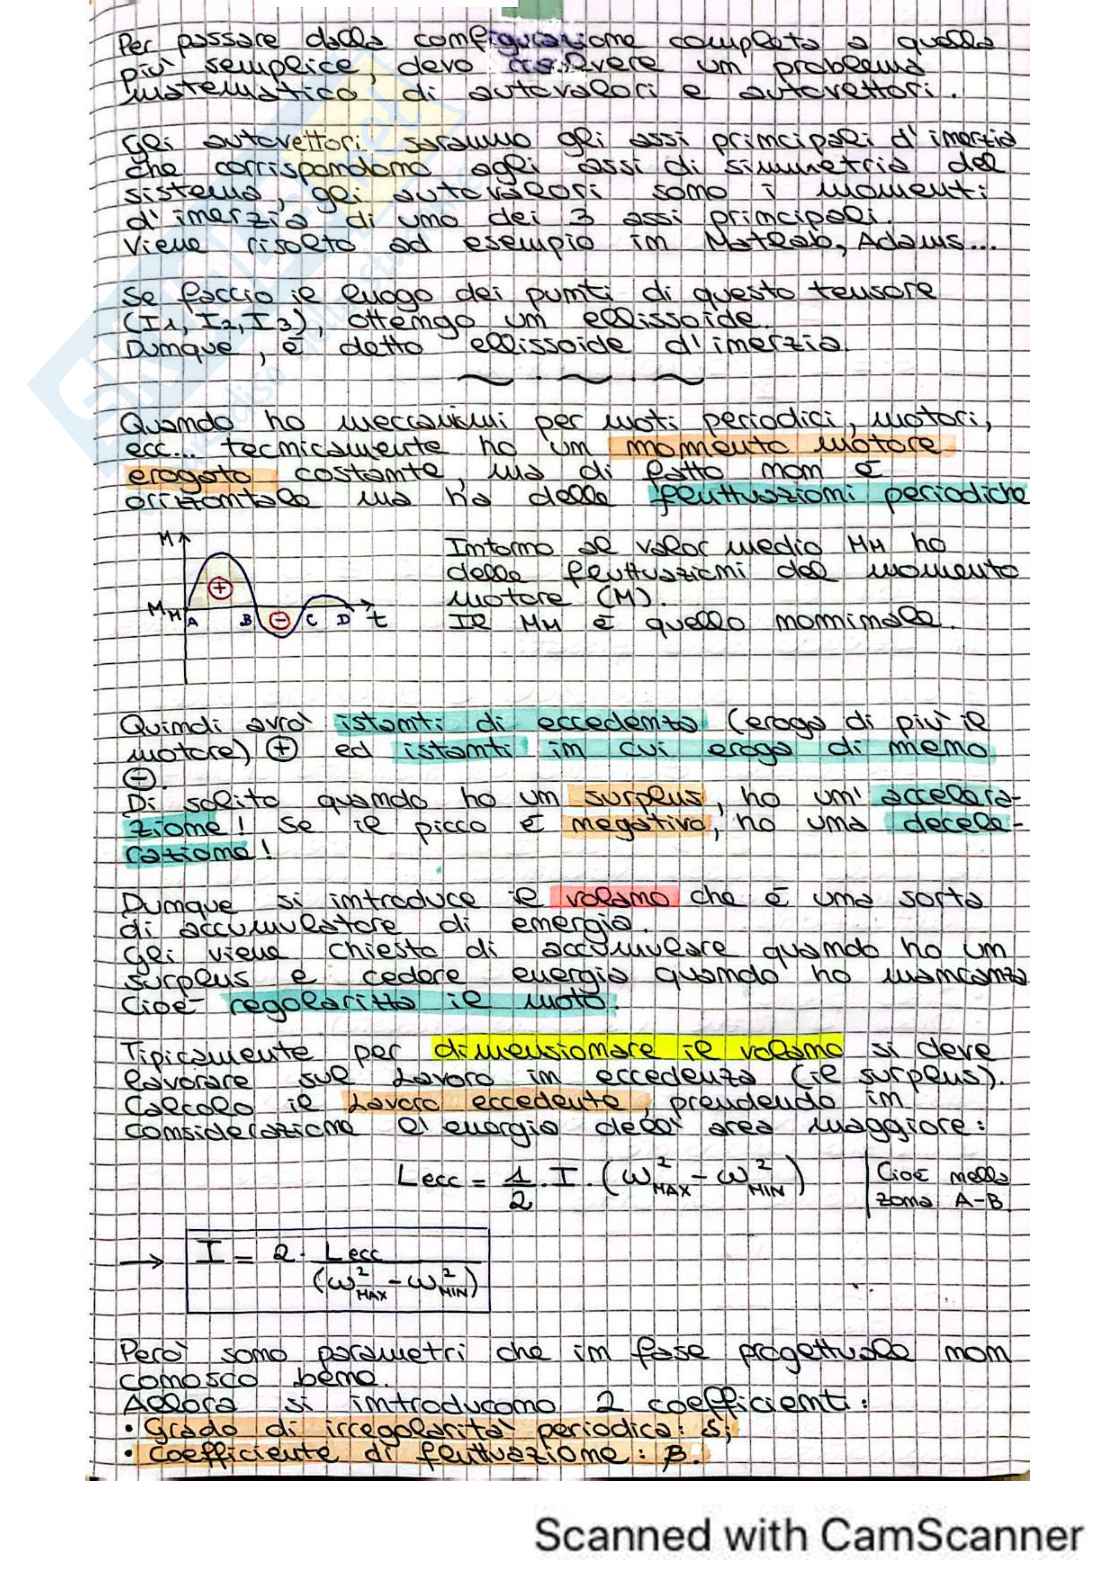 Per passare dalla configurazione completa a quella
più semplice, devo risolvere un problema
matematico di autovalori e autovettori.
Gli autovettori saranno gli assi principali d'inerzia
che corrispondono agli assi di simmetria del
sistema, gli autovalori sono i momenti
d'inerzia di uno dei 3 assi principali.
Viene risolto ad esempio in Matlab, Adams...
Se faccio il luogo dei punti di questo tensore
(I1, I2, I3), ottengo un ellissoide.
Dunque, è detto ellissoide d'inerzia.
Quando ho meccanismi per moti periodici, motori,
ecc... tecnicamente ho un momento motore
erogato costante, ma di fatto non è
orizzontale ma ha delle fluttuazioni periodiche
M
Intorno al valor medio MM ho
delle fluttuazioni del momento
motore (M).
Il MM è quello nominale.
MM A B C D t
+ -
Quindi avrò istanti di eccedenza (eroga di più il
motore) + ed istanti in cui eroga di meno
-.
Di solito quando ho un surplus, ho un'accelera-
zione! Se il picco è negativo, ho una decele-
razione!
Dunque si introduce il volano che è una sorta
di accumulatore di energia.
Gli viene chiesto di accumulare quando ho un
surplus e cedere energia quando ho mancanza
Cioè regolarizza il moto.
Tipicamente per dimensionare il volano si deve
lavorare sul Lavoro in eccedenza (il surplus).
Calcolo il Lavoro eccedente, prendendo in
considerazione l'energia dell'area maggiore:
Lecc = 1/2 · I · (ω²MAX - ω²MIN)
Cioè nella
zona A-B
→ I = 2 · Lecc / (ω²MAX - ω²MIN)
Però sono parametri che in fase progettuale non
conosco bene.
Allora si introducono 2 coefficienti:
• Grado di irregolarità periodica: δ;
• Coefficiente di fluttuazione: β.
Scanned with CamScanner